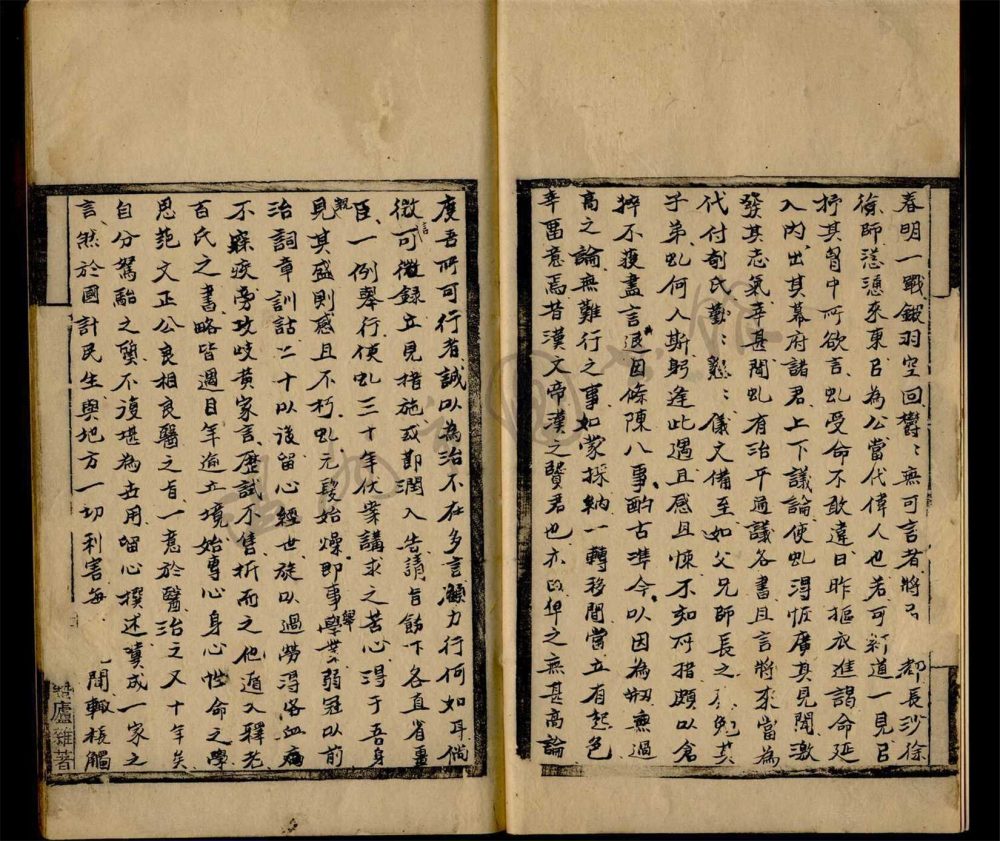 春明一戰鎩羽空回鬱〻無可言者將 都長沙徐
徐師慫慂來東曰為公當代偉人也若可紆道一見曰
抒其胸中所欲言虬受命不敢違日昨摳衣進謁命延
入內出其幕府諸君上下議論使虬得恢廣其見聞激
發其志氣幸甚聞虬有治平通議各書且言將來當為
代付剞氏勤〻懇〻儀文備至如父兄師長之 勉其
子弟虬何人斯躬逢此遇且感且悚不知所措頗以倉
猝不獲盡言退因條陳八事酌古準今以因為剏無過
高之論無難行之事如蒙採納一轉移間當立有起色
幸留意焉昔漢文帝漢之賢君也亦曰卑之無甚高論
度吾所可行者誠以為治不在多言顧力行何如耳倘
微信可徵錄立見措施或即潤入告請旨飭下各直省畺
臣一例舉行使虬三十年伏案講求之苦心得于吾身
親見其盛則感且不朽虬元髮始燥即事舉業弱冠以前
治詞章訓詁二十以後留心經世旋以過勞得咯血病
不寐疾旁攻岐黃家言歷試不售折而之他遁入釋老
百氏之書略皆過目年逾立境始專心身心性命之學
思范文正公良相良醫之旨一意於醫治之又十年矣
自分駑駘之質不復堪為世用留心撰述冀成一家之
言然於國計民生與地方一切利害每 聞輒棖觸
廬雜著